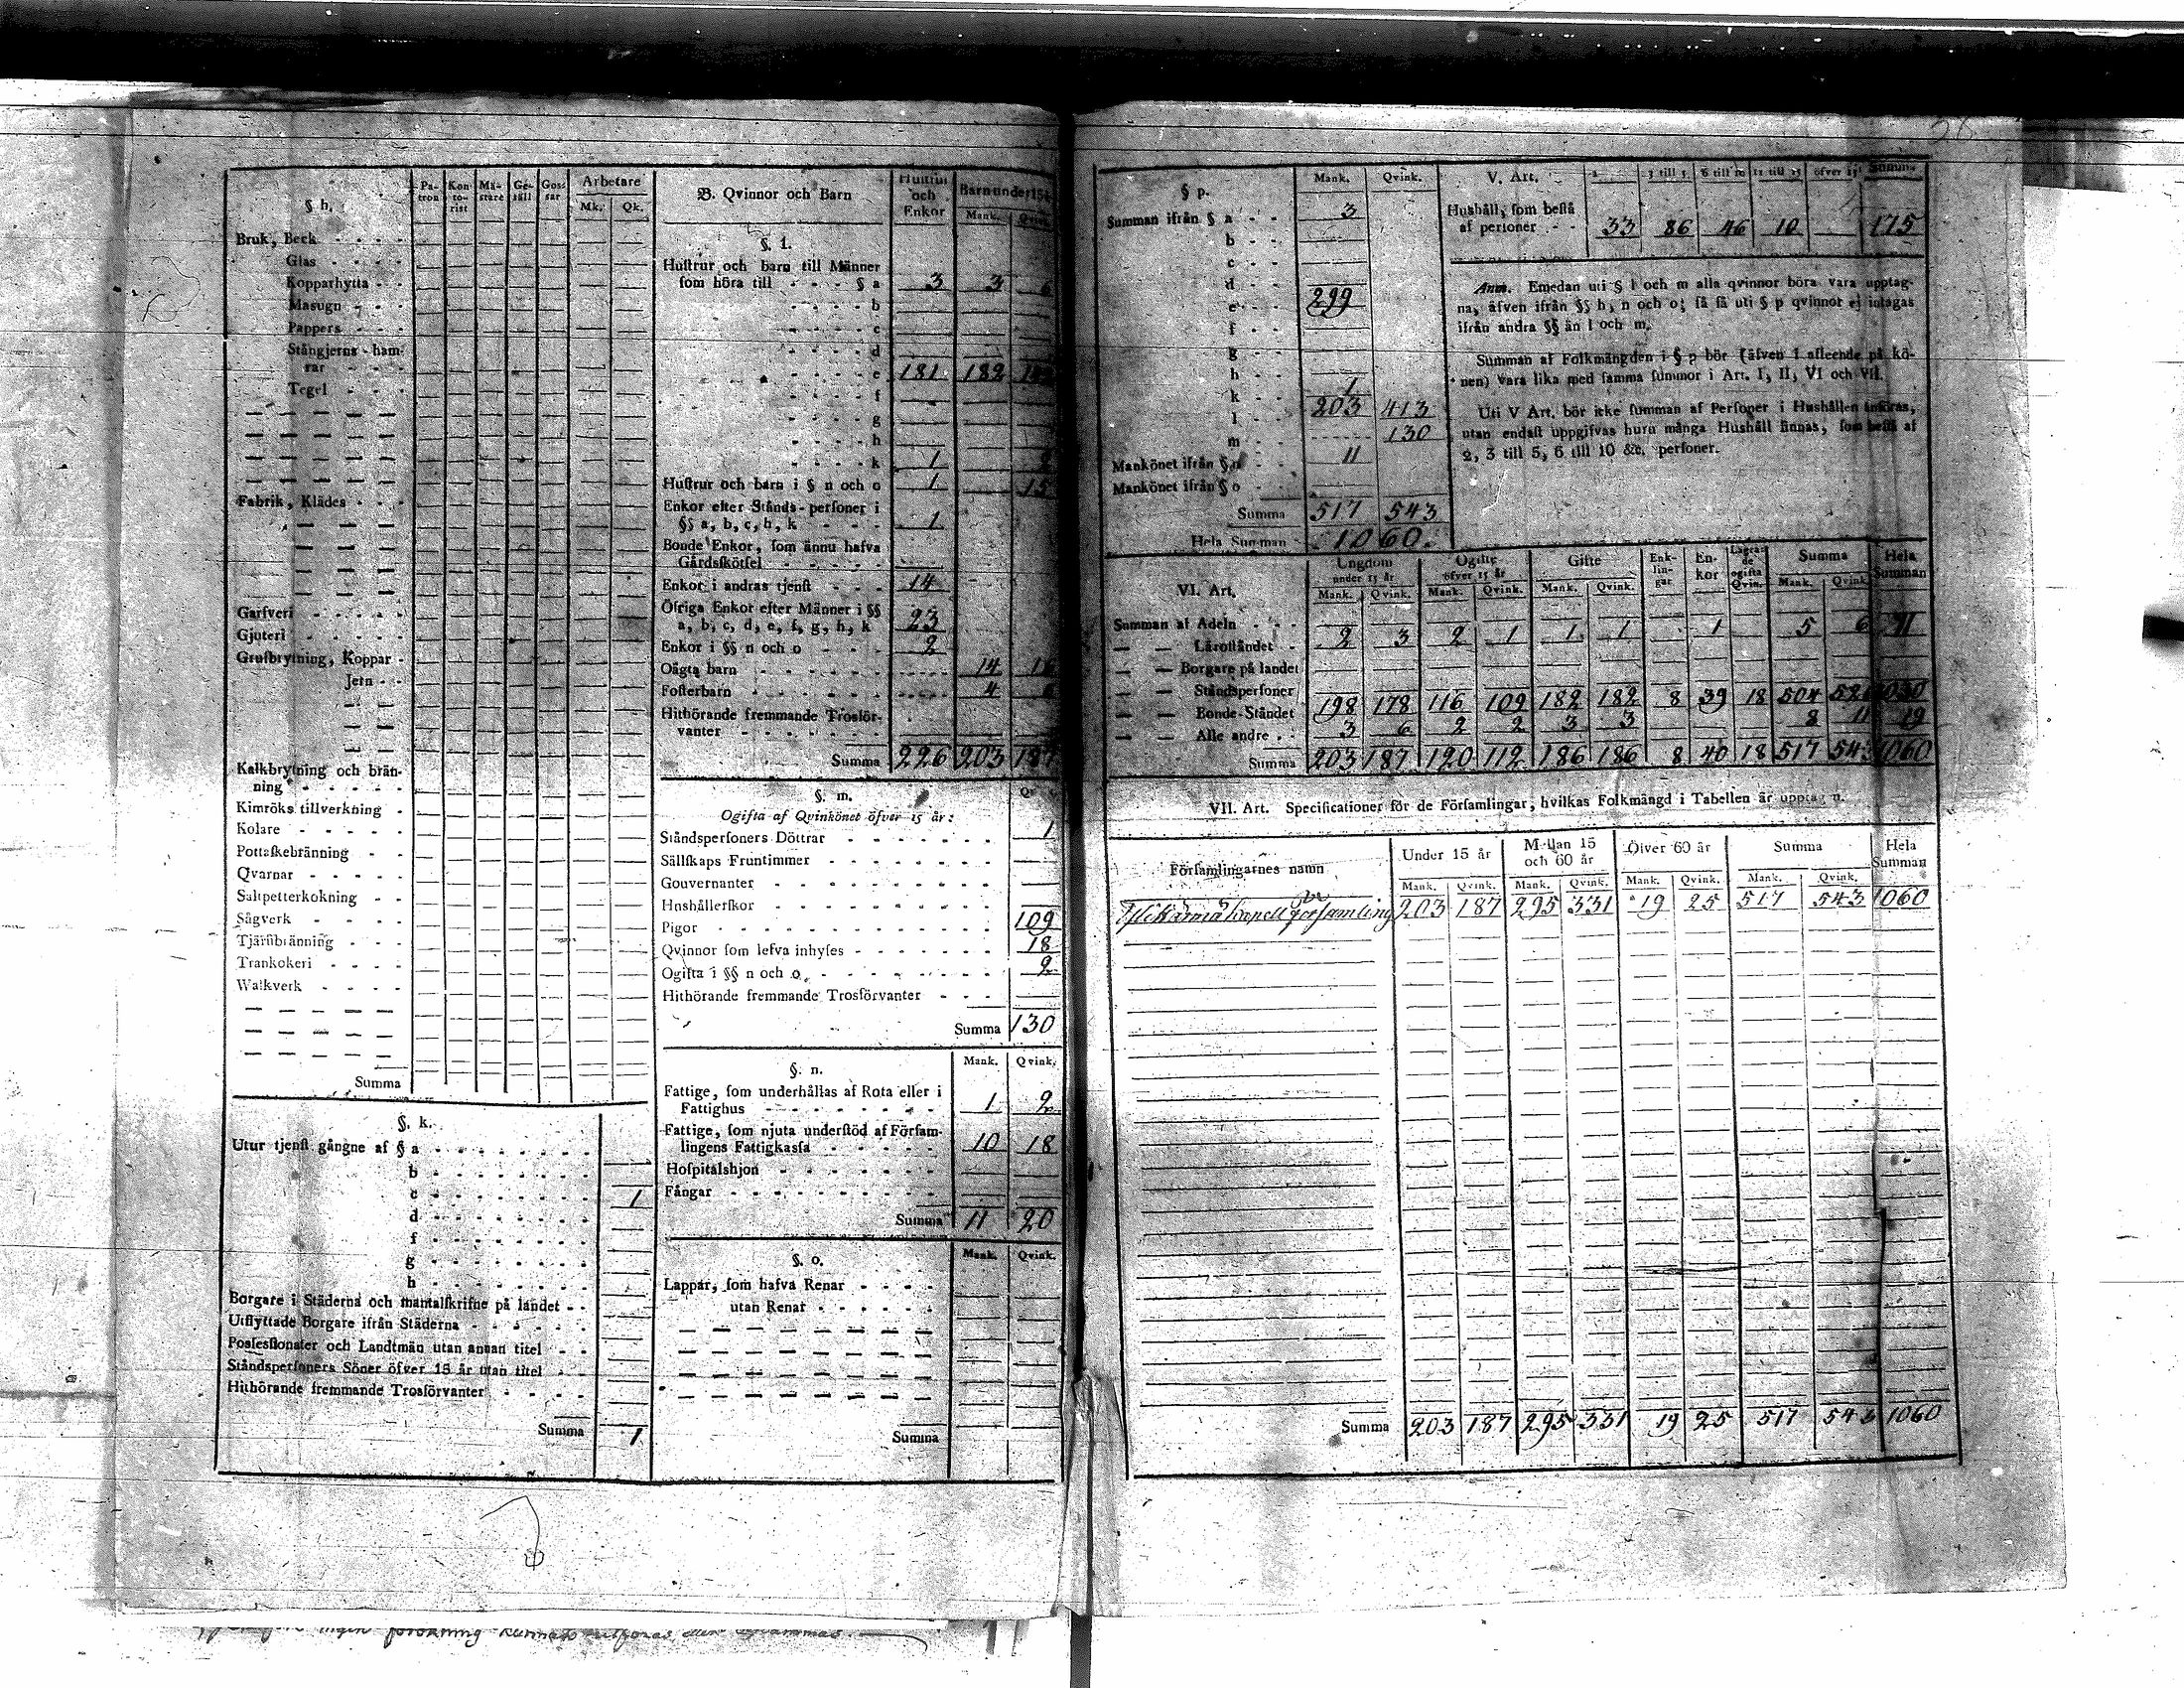 § h.
Pa- tron Kon- to- rist Mä- stare Ge- säll Gos- sar Arbetare
Mk. Qk.
Bruk, Beck
Glas
Kopparhytta
Masugn
Pappers
Stångjerns-ham-
rar
Tegel
Fabrik, Klädes
Garfveri
Gjuteri
Grufbrytning, Koppar
Jern
Kalkbrytning och brän-
ning
Kimröks tillverkning
Kolare
Pottaskebränning
Qvarnar
Saltpetterkokning
Sågverk
Tjärubränning
Trankokeri
Walkverk
Summa
§. k.
Utur tjenst gångne af § a
b
c 1
d
f
g
h
Borgare i Städerna och mantalskrifne på landet
Utflyttade Borgare ifrån Städerna
Possessionater och Landtmän utan annan titel
Ståndspersoners Söner öfver 15 år utan titel
Hithörande fremmande Trosförvanter
Summa 1
B. Qvinnor och Barn Hustrur och Enkor Barn under 15
Mank. Qvink.
§. l.
Hustrur och barn till Männer
som höra till § a 3 3 6
b
c
d
e 181 182
f
g
h
k 1 2
Hustrur och barn i § n och o 1 15
Enkor efter Stånds-personer i
§§ a, b, c, h, k 1
Bonde Enkor, som ännu hafva
Gårdsskötsel
Enkor i andras tjenst 14
Öfriga Enkor efter Männer i §§
a, b, c, d, e, f, g, h, k 23
Enkor i §§ n och o 2
Oägta barn 14
Fosterbarn 4
Hithörande fremmande Trosför-
vanter
Summa 226 203 187
§. m.
Ogifta af Qvinkönet öfver 15 år:
Ståndspersoners Döttrar 1
Sällskaps Fruntimmer
Gouvernanter
Hushållerskor
Pigor 109
Qvinnor som lefva inhyses 18
Ogifta i §§ n och o 2
Hithörande fremmande Trosförvanter
Summa 130
§. n. Mank. Qvink.
Fattige, som underhållas af Rota eller i
Fattighus 1 2
Fattige, som njuta understöd af Försam-
lingens Fattigkassa 10 18
Hospitalshjon
Fångar
Summa 11 20
§. o. Mank. Qvink.
Lappar, som hafva Renar
utan Renar
Summa
§ p. Mank. Qvink.
Summan ifrån § a 3
b
c
d
e 299
f
g
h
k 1
l 203 413
m 130
Mankönet ifrån § n 11
Mankönet ifrån § o
Summa 517 543
Hela Summan 1060.
V. Art. 2 3 till 5 6 till 10 11 till 15 öfver 15 Summa
Hushåll, som bestå
af personer 33 86 46 10 175
Anm. Emedan uti § l och m alla qvinnor böra vara upptag-
na, äfven ifrån §§ h, n och o; så få uti § p qvinnor ej intagas
ifrån andra §§ än l och m.
Summan af Folkmängden i § p bör (äfven i afseende på kö-
nen) vara lika med samma summor i Art. I, II, VI och VII.
Uti V Art. bör icke summan af Personer i Hushållen införas,
utan endast uppgifvas huru många Hushåll finnas, som bestå af
2, 3 till 5, 6 till 10 &c. personer.
VI. Art. Ungdom under 15 år Ogifte öfver 15 år Gifte Enk- lin- gar En- kor ogifta Qvin. Summa Hela Summan
Mank. Qvink. Mank. Qvink. Mank. Qvink. Mank. Qvink.
Summan af Adeln
Läroståndet 2 3 2 1 1 1 1 5 6 11
Borgare på landet
Ståndspersoner
Bonde-Ståndet 198 178 116 109 182 182 8 39 18 504 526 1030
Alle andre 3 6 2 2 3 3 8 11 19
Summa 203 187 120 112 186 186 8 40 18 517 543 1060
VII. Art. Specificationer för de Församlingar, hvilkas Folkmängd i Tabellen är upptagen.
Församlingarnes namn Under 15 år Mellan 15 och 60 år Öfver 60 år Summa Hela Summan
Mank. Qvink. Mank. Qvink. Mank. Qvink. Mank. Qvink.
Capell församling 203 187 295 331 19 25 517 543 1060
Summa 203 187 295 331 19 25 517 543 1060